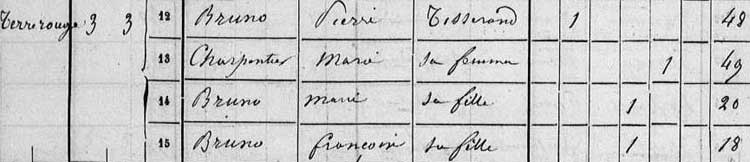 Terrerouge 3 3 12 Bruno Pierre Tisserand 1 48
13 Charpentier Marie sa femme 1 49
14 Bruno marie sa fille 1 20
15 Bruno françoise sa fille 1 18